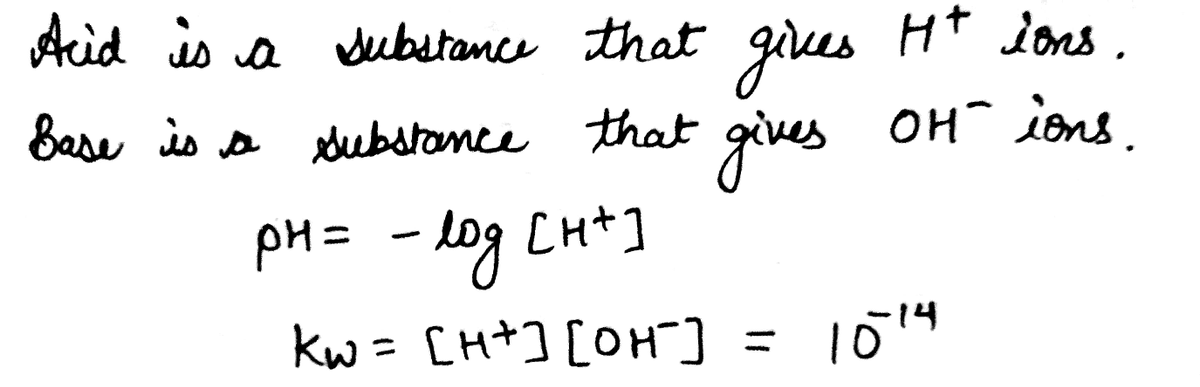 Acid is a substance that gives H⁺ ions.
Base is a substance that gives OH⁻ ions.
pH = - log [H⁺]
Kw = [H⁺] [OH⁻] = 10⁻¹⁴